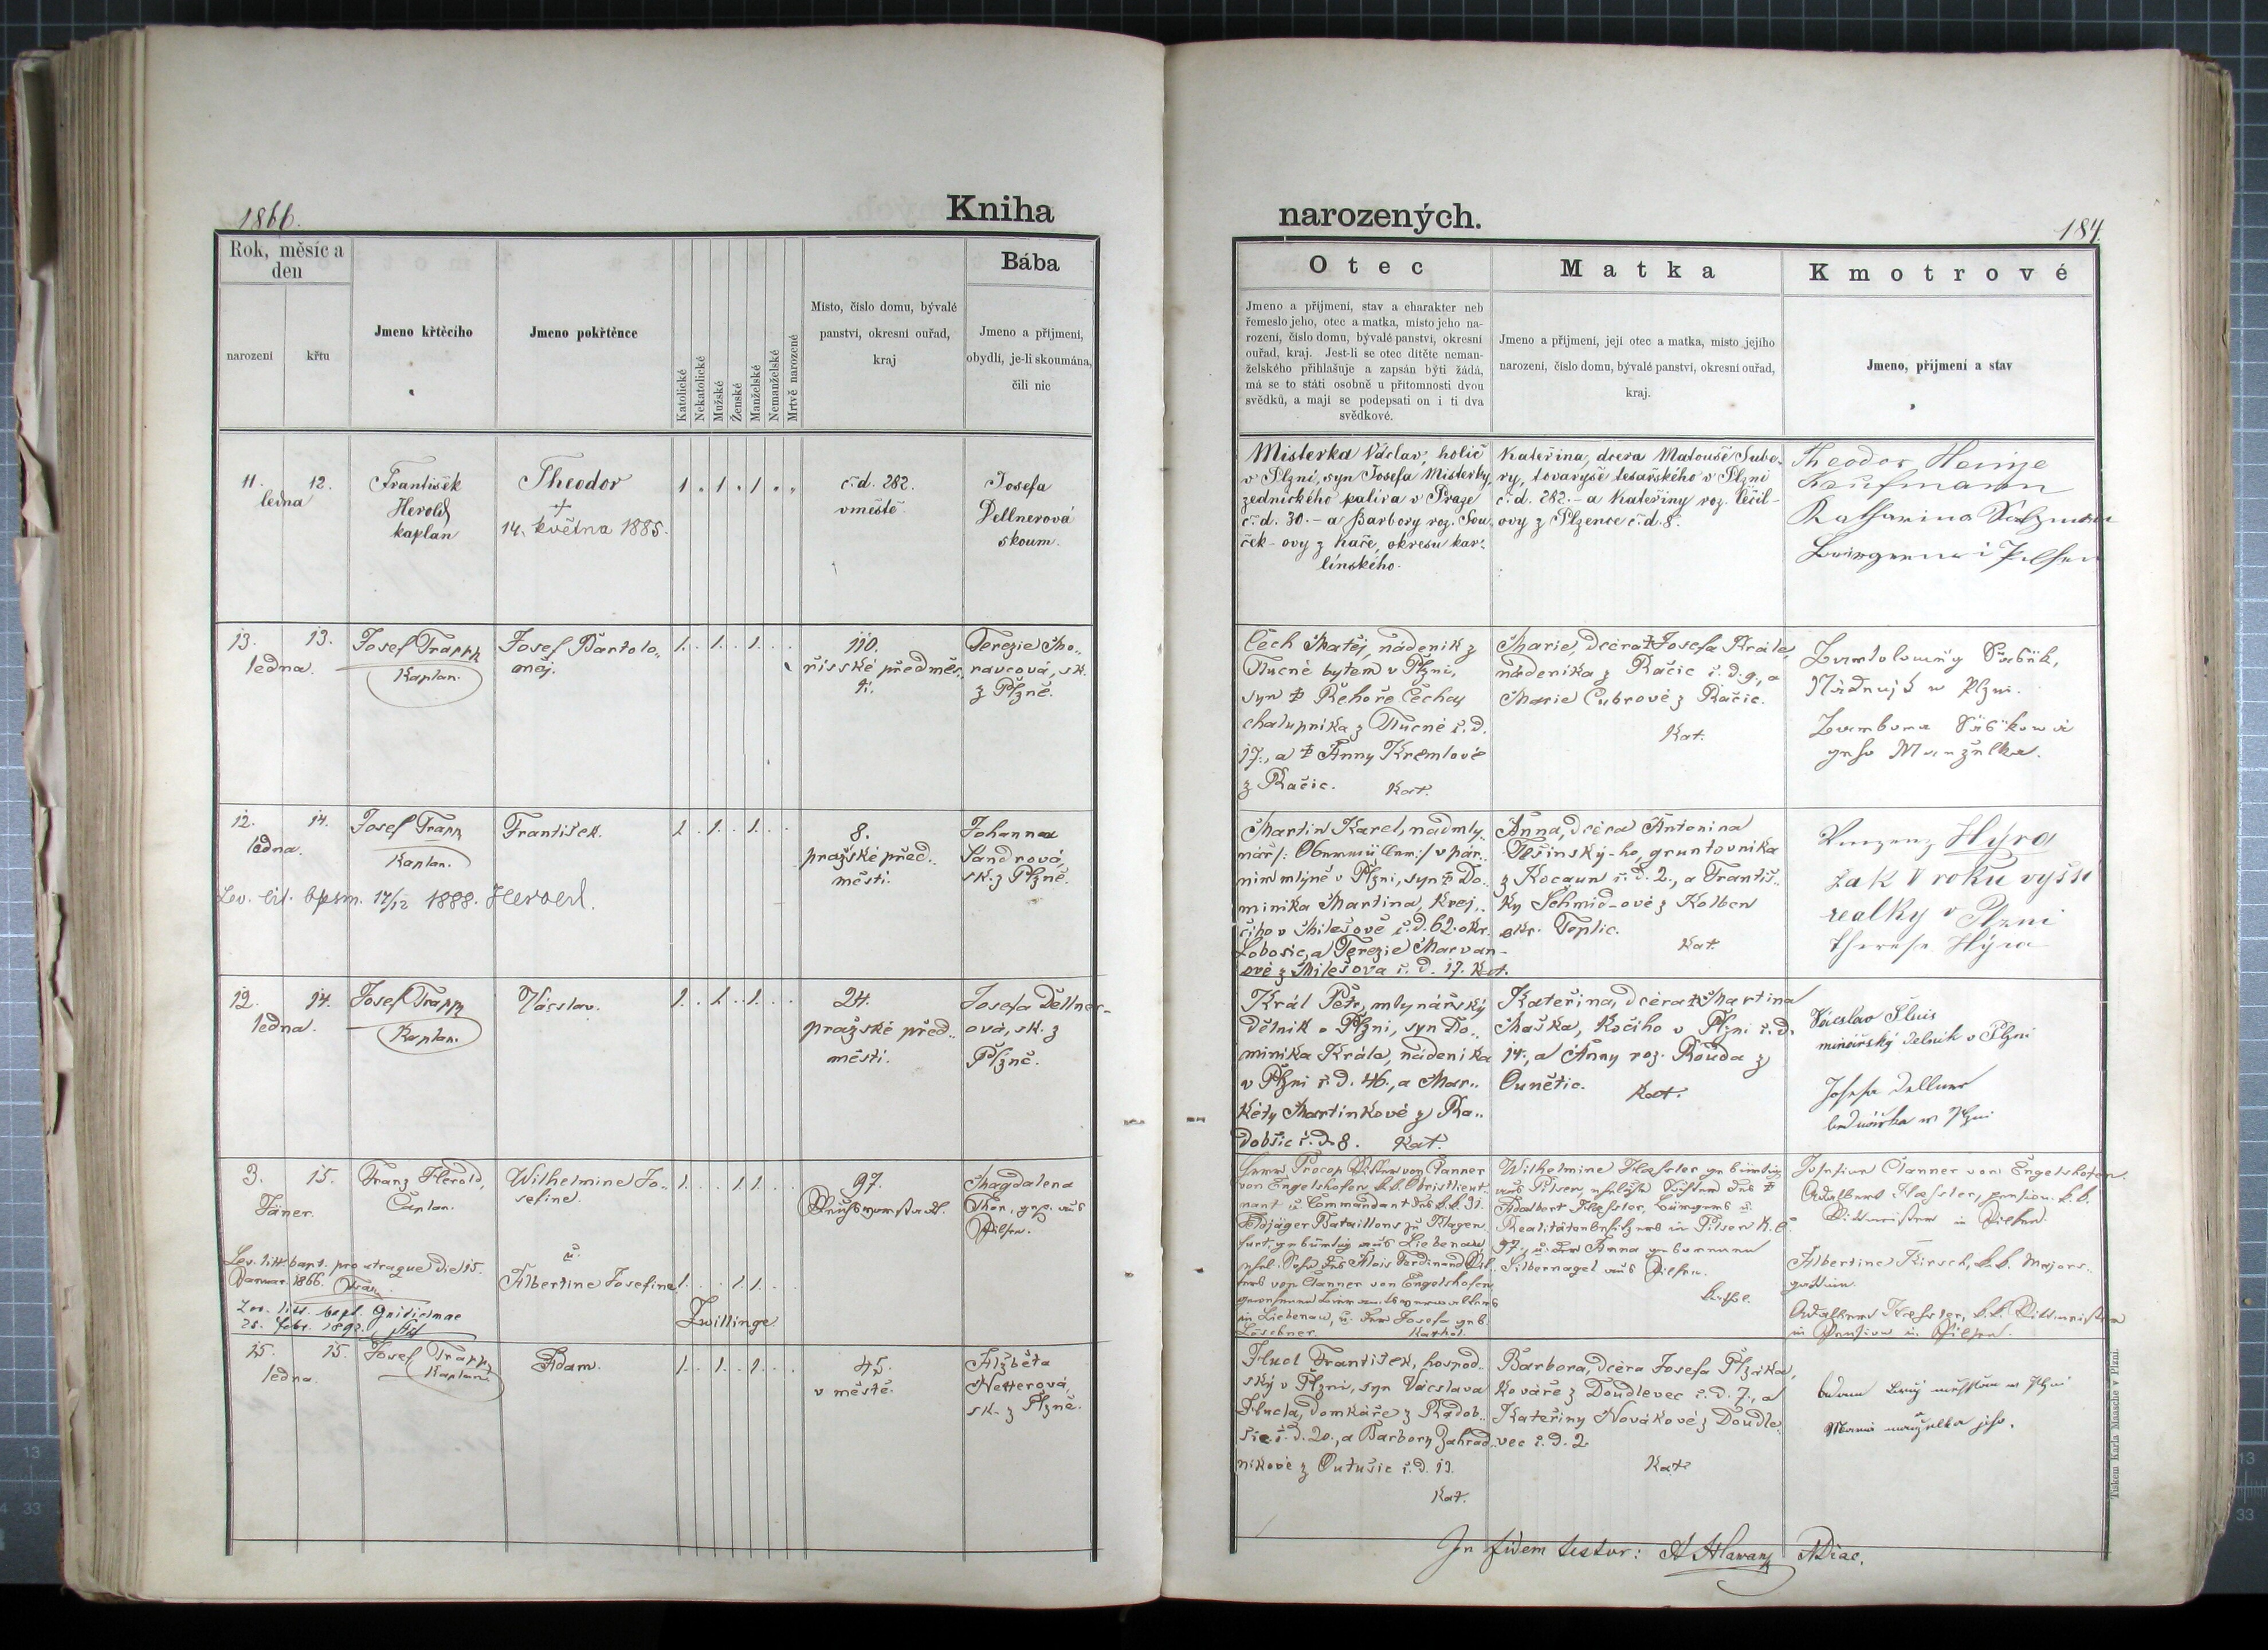 1866.
Kniha
Rok, měsíc a
den
narození
křtu
Jmeno křtěcího
Jmeno pokřtěnce
Katolické
Nekatolické
Mužské
Ženské
Manželské
Nemanželské
Mrtvě narozené
Místo, číslo domu, bývalé
panství, okresní ouřad,
kraj
Bába
Jmeno a příjmení,
obydlí, je-li skoumána,
čili nic
11. 12.
ledna
František
Herold
kaplan
Theodor
†
14. května 1885.
1 . 1 . 1 . .
č.d. 282.
v městě
Josefa
Dellnerová
skoum.
13. 13.
ledna.
Josef Trapp
Kaplan.
Josef Bartolo„
měj.
1. . 1. . 1. . .
110.
řísské předměs„
tí.
Terezie Mo„
ravcová, sk.
z Plzně.
12. 14.
ledna.
Josef Trapp
Kaplan.
František.
1. . 1. . 1. . .
8.
pražské před„
městí.
Johanna
Sandrová,
sk. z Plzně.
Lev. lit. bpsm. 17/12 1888. Herold.
12. 14.
ledna.
Josef Trapp
Kaplan.
Václav.
1. . 1. . 1. . .
24.
pražské před„
městí.
Josefa Dellner-
ová, sk. z
Plzně.
3. 15.
Jäner.
Franz Herold,
Caplan.
Wilhelmine Jo„
sefine.
1. . . 1 1. . .
97.
Reichsvorstadt.
Magdalena
Thon, gep. aus
Pilsen.
u.
Albertine Josefine
1. . . 1 1. . .
Zwillinge
Lev. litt. bapt. pro utraque die 15.
Januar. 1866.
Lev. litt. bapt. Guilielmae
25. febr. 1892.
15. 15.
ledna.
Josef Trapp
Kaplan.
Adam.
1. . 1. . 1. . .
45.
v městě.
Alžběta
Netterová,
sk. z Plzně.
narozených.
184.
Otec
Jmeno a příjmení, stav a charakter neb
řemeslo jeho, otec a matka, místo jeho na-
rození, číslo domu, bývalé panství, okresní
ouřad, kraj. Jest-li se otec dítěte neman-
želského přihlašuje a zapsán býti žádá,
má se to státi osobně u přítomnosti dvou
svědků, a mají se podepsati on i ti dva
svědkové.
Matka
Jmeno a příjmení, její otec a matka, místo jejího
narození, číslo domu, bývalé panství, okresní ouřad,
kraj.
Kmotrové
Jmeno, příjmení a stav
Misterka Václav, holič
v Plzni, syn Josefa Misterky,
zednického palíra v Praze
č.d. 30.- a Barbory roz. Sou„
ček-ovy z Kaře, okresu kar„
línského.
Kateřina, dcera Matouše Subo„
ry, tovaryše tesařského v Plzni
č.d. 282.- a Kateřiny roz. Ččil-
ovy z Plzence č.d. 8.
Theodor Heinze
Kaufmann
Katharina Salzmann
Čech Matěj, nádeník z
Tlucné bytem v Plzni,
syn † Řehoře Čecha,
chalupníka z Tlucné č.d.
17., a † Anny Kremlové
z Račic. Kat.
Marie, dcéra † Josefa Krále,
nádeníka z Račic č.d. 9., a
Marie Cubrové z Račic.
Kat.
Martin Karel, nadmly„
nář /: Obermüller:/ v pár„
ním mlýně v Plzni, syn † Do„
minika Martina, krej„
čího v Milešově č.d. 62. okr.
Lobosic, a Terezie Marvan-
ové z Milešova č.d. 17. Kat.
Anna, dcéra Antonína
Těšínský-ho, gruntovníka
z Kocaun č.d. 2., a Františ„
ky Schmid-ové z Kolben
okr. Teplic. Kat.
Vinzenz Hýra
žak V roku vyšší
realky v Plzni
Therese Hýra
Král Petr, mlynářský
dělník v Plzni, syn Do„
minika Krále, nádeníka
v Plzni č.d. 46., a Mar„
kéty Martínkové z Ra„
dobšic č.d. 8. Kat.
Kateřina, dcéra † Martina
Maška, kočího v Plzni č.d.
14., a Anny roz. Rouda z
Ounětic. Kat.
dělník v Plzni
Josefa Dellner
Herr Procop Ritter von Clanner
von Engelshofen k.k. Obristlieut„
nant u. Commandant des k.k. 9t.
Feldjäger Bataillons zu Klagen„
furt, gebürtig aus Liebenau
ehel. Sohn des Alois Ferdinand Rit„
ters von Clanner von Engelshofen,
in Liebenau, u. der Josefa geb.
Löschner. Kathol.
Wilhelmine Hassler gebürtig
aus Pilsen, eheliche Tochter des †
Adalbert Hassler, Bürgers u.
Realitätenbesitzers in Pilsen N.C.
97., u. der Anna geborenen
Silbernagel aus Pilsen.
Kathol.
Josefine Clanner von Engelshofen.
Adalbert Hassler, pension. k.k.
Rittmeister in Pilsen.
Albertine Kirsch, k.k. Majors„
gattin.
Adalbert Hassler, k.k. Rittmeister
in Pension in Pilsen.
Hucl František, hospod„
ský v Plzni, syn Václava
Hucla, domkáře z Radob„
šic č.d. 20., a Barbory Zahrad„
níkové z Outušic č.d. 13.
Kat.
Barbora, dcéra Josefa Plzáka,
kováře z Doudlevec č.d. 7., a
Kateřiny Novákové z Doudle„
vec č.d. 2
Kat.
In fidem testor:
Tiskem Karla Maasche v Plzni.